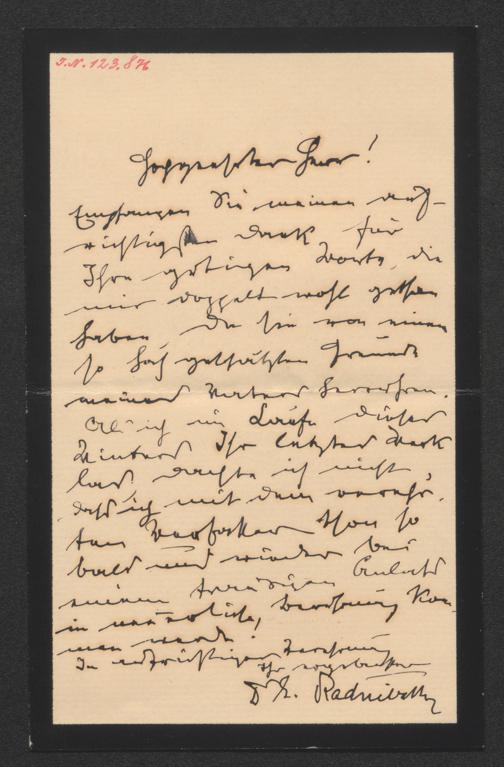 I.N. 123.876
Hochgeehrter Herr!
Empfangen Sie meinen auf-
richtigsten Dank für
Ihre gütigen Worte, die
mir doppelt wohl gethan
haben, da sie von einem
so hoch geschätzten Freunde
meines Vaters herrühren.
Als ich im Laufe dieses
Winters Ihr letztes Werk
las, dachte ich nicht,
dass ich mit dem verehr-
ten Verfasser schon so
bald und wieder bei
einem traurigen Anlass
in Berührung kom-
men werde.
In aufrichtiger Verehrung
Ihr ergebenster
Dr.